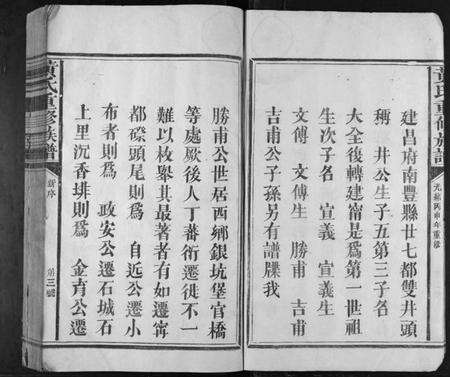 黃氏重修族譜
光緒丙申年重修
建昌府南豐縣廿七都雙井頭
稱 井公生子五第三子名
大全後轉建甯是爲第一世祖
生次子名 宣義 宣義生
文傅 文傅生 勝甫 吉甫
吉甫公子孫另有譜牒我
勝甫公世居西鄉銀坑堡官橋
等處厥後人丁蕃衍遷徙不一
難以枚舉其最著者有如遷甯
都磜頭尾則爲 自近公遷小
布者則爲 政安公遷石城石
上里沉香排則爲 金育公遷
黃氏重修族譜
新序
第三號